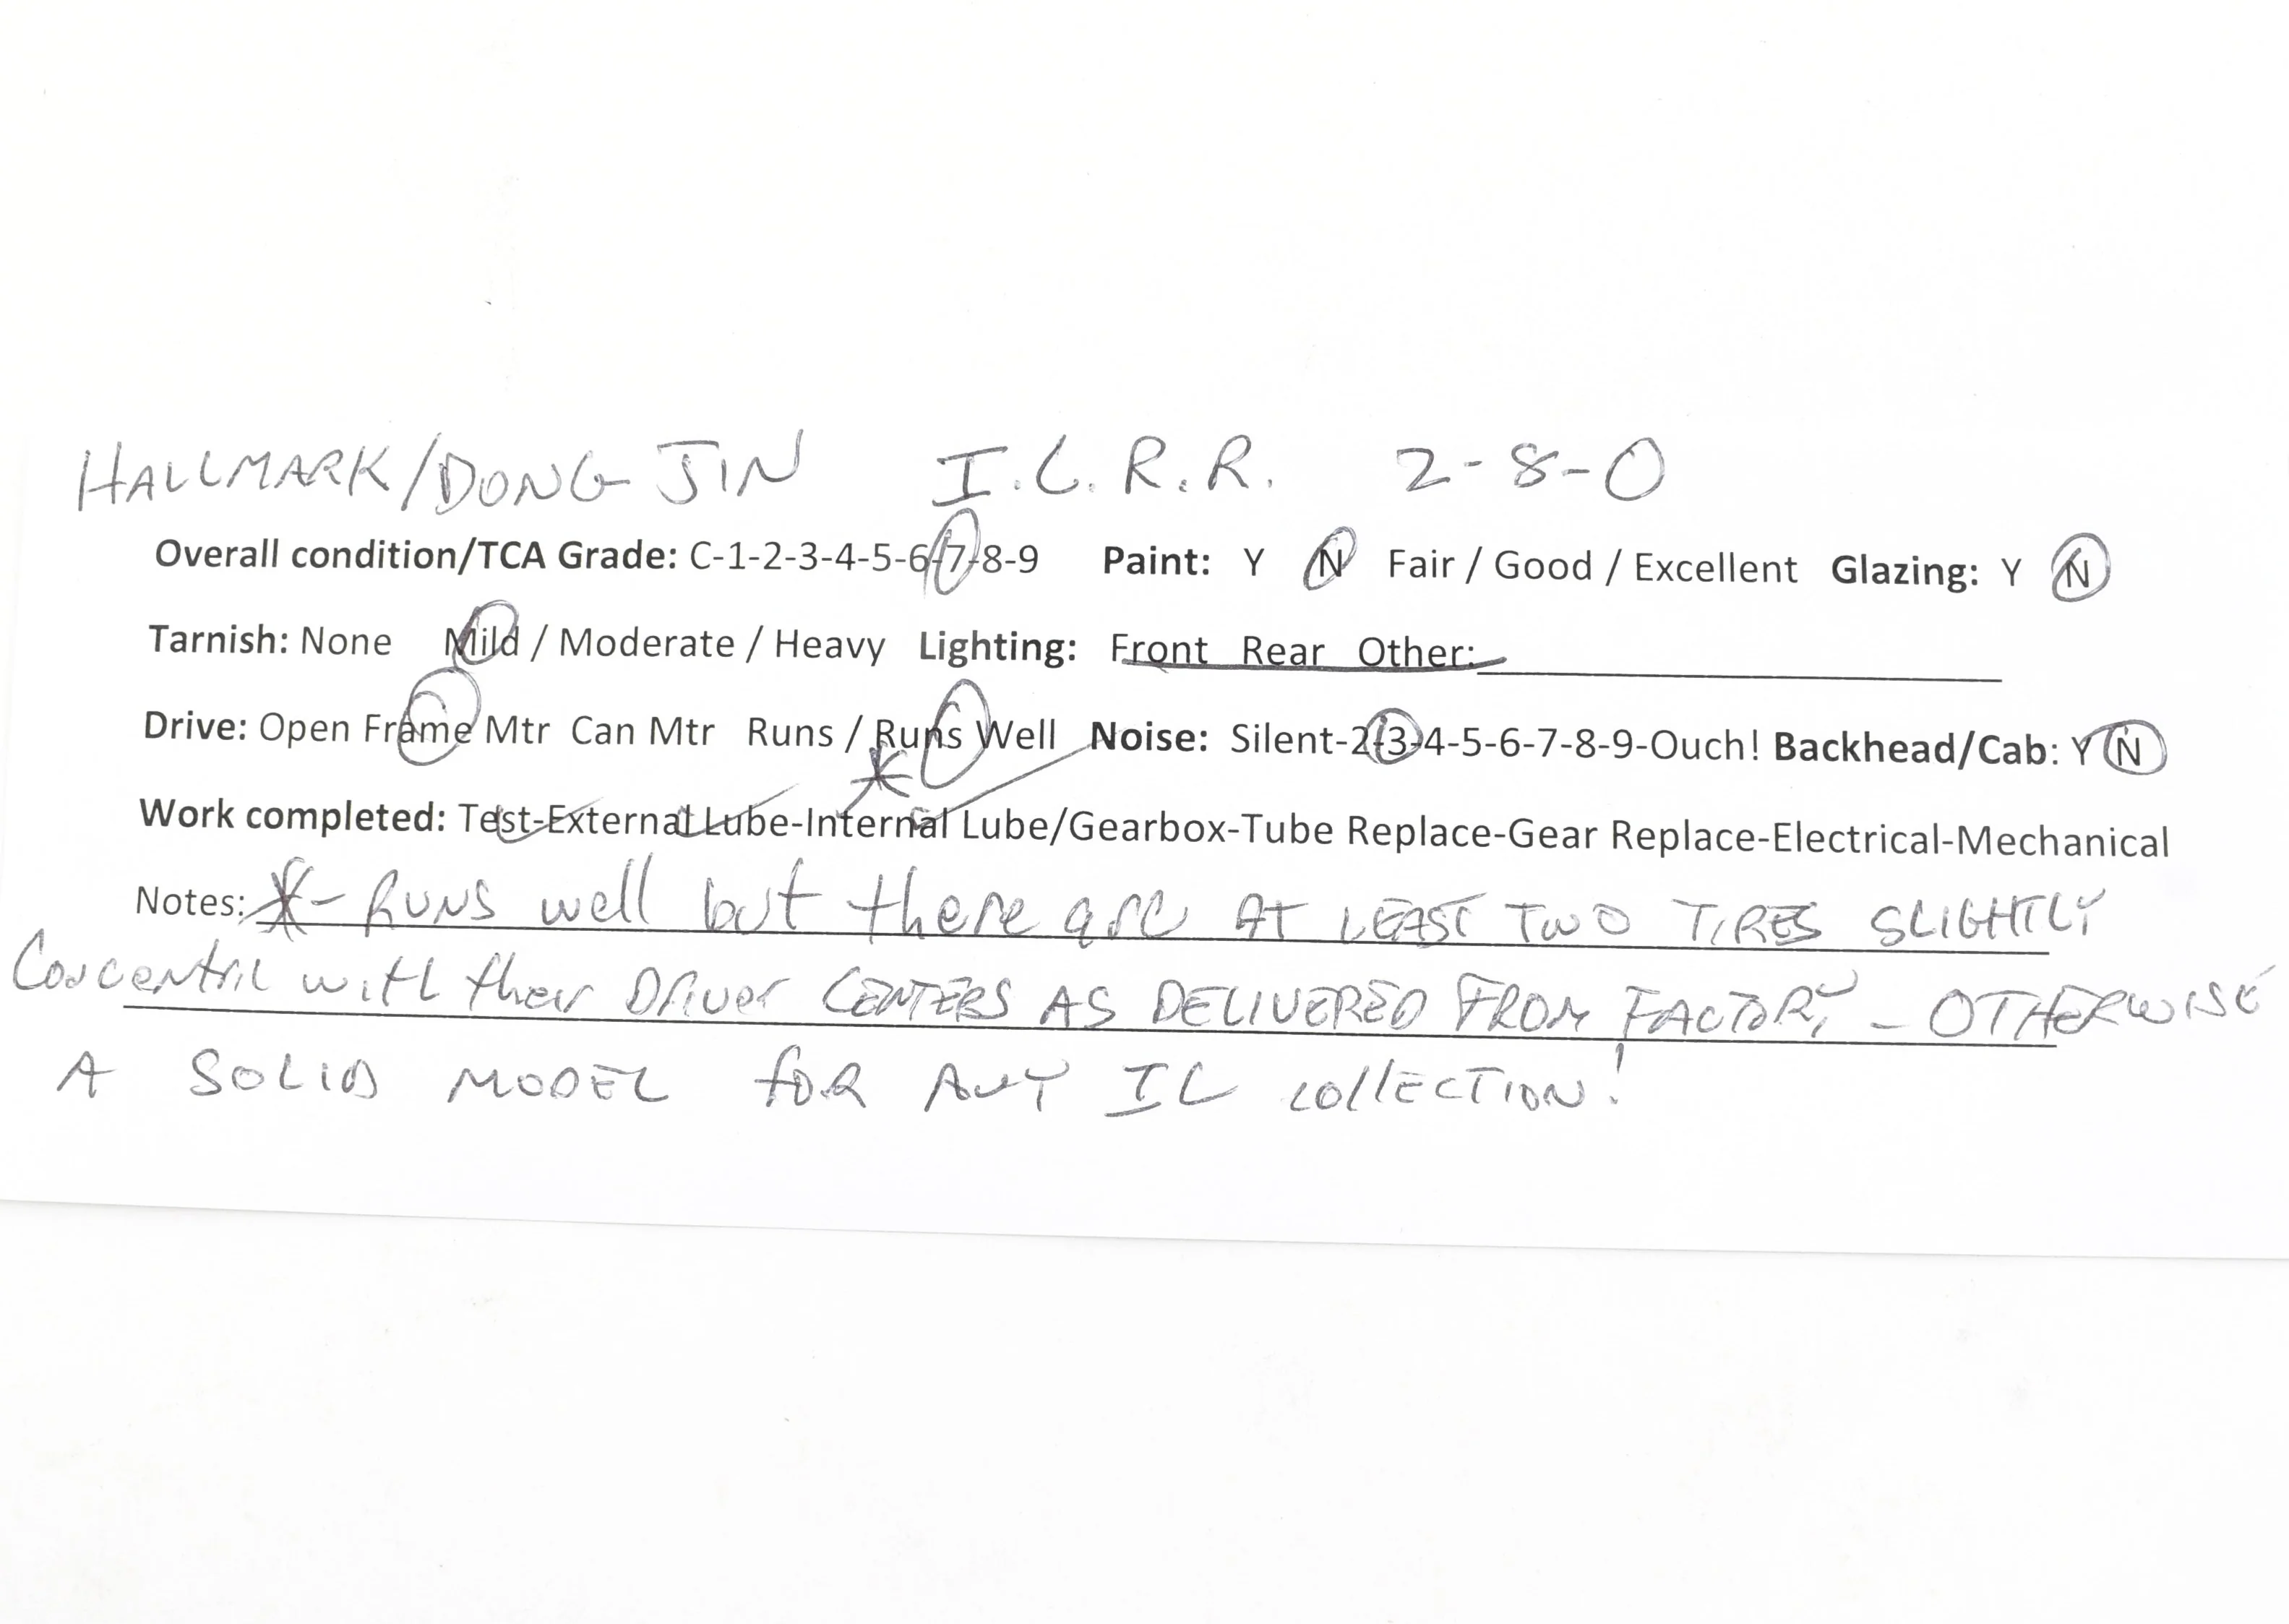 HALLMARK/DONG JIN I.C.R.R. 2-8-0
Overall condition/TCA Grade: C-1-2-3-4-5-6-7-8-9 Paint: Y N Fair / Good / Excellent Glazing: Y N
Tarnish: None Mild / Moderate / Heavy Lighting: Front Rear Other:
Drive: Open Frame Mtr Can Mtr Runs / Runs Well Noise: Silent-2-3-4-5-6-7-8-9-Ouch! Backhead/Cab: Y N
Work completed: Test-External Lube-Internal Lube/Gearbox-Tube Replace-Gear Replace-Electrical-Mechanical
Notes: *- RUNS well but there are AT LEAST TWO TIRES SLIGHTLY
Concentric with their Driver CENTERS AS DELIVERED FROM FACTORY - OTHERWISE
A SOLID MODEL FOR ANY IC COLLECTION!